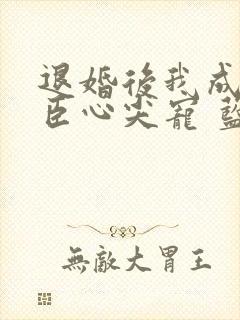 退婚後我成
臣心尖寵 藍
無敵大胃王